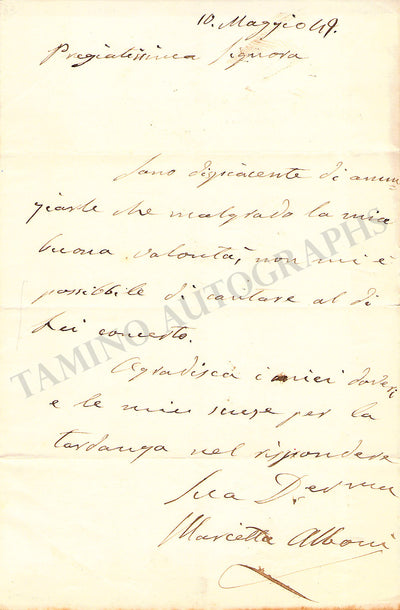 10. Maggio 49.
Pregiatissima Signora
Sono dispiacente di annun
ziarle che malgrado la mia
buona volontà, non mi è
possibbile di cantare al di
Lei concerto.
Agradisca i miei doveri
e le mie scuse per la
tardanza nel rispondere
Sua
Marietta Alboni
TAMINO AUTOGRAPHS